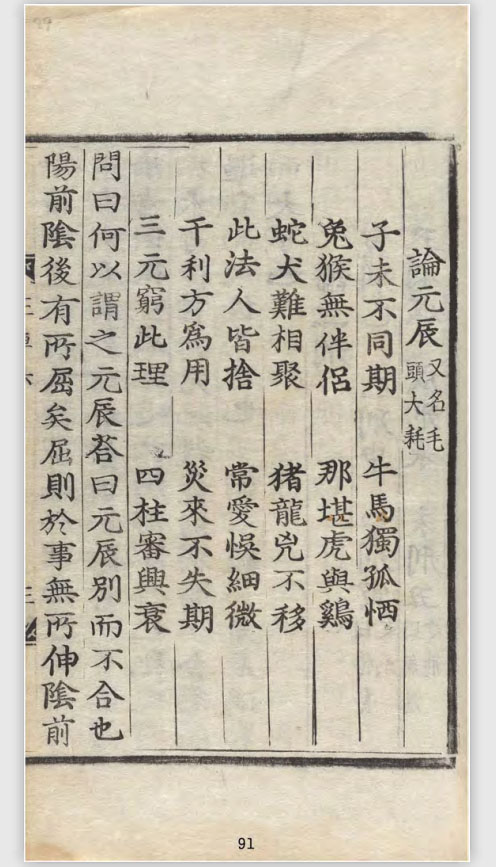 論元辰又名毛頭大耗
子未不同期 牛馬獨孤恓
兔猴無伴侶 那堪虎與鷄
蛇犬難相聚 猪龍兇不移
此法人皆捨 常愛悞細微
千利方爲用 災來不失期
三元窮此理 四柱審興衰
問曰何以謂之元辰荅曰元辰別而不合也
陽前陰後有所屈矣屈則於事無所伸陰前
91